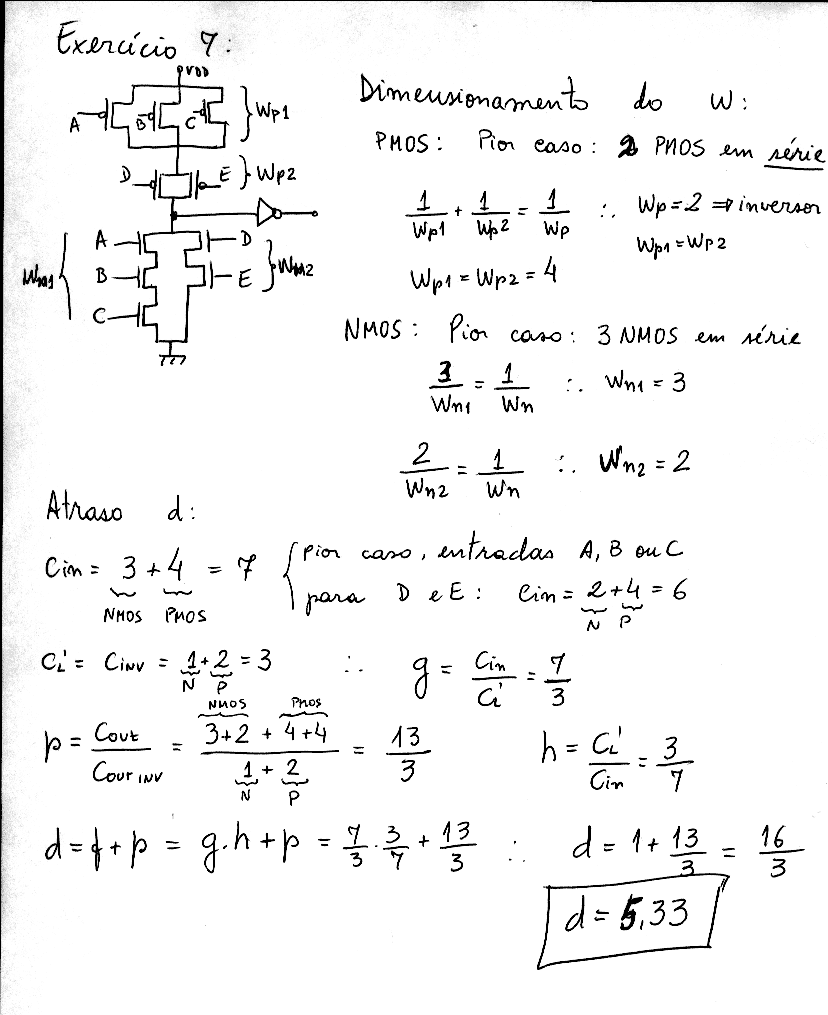 Exercício 7:
VDD
A B C Wp1
D E Wp2
A D
Wn1 B E Wn2
C
Dimensionamento do W:
PMOS: Pior caso: 2 PMOS em série
1/Wp1 + 1/Wp2 = 1/Wp ∴ Wp = 2 ⇒ inversor
Wp1 = Wp2
Wp1 = Wp2 = 4
NMOS: Pior caso: 3 NMOS em série
3/Wn1 = 1/Wn ∴ Wn1 = 3
2/Wn2 = 1/Wn ∴ Wn2 = 2
Atraso d:
Cin = 3 + 4 = 7 { Pior caso, entradas A, B ou C
NMOS PMOS
para D e E: Cin = 2 + 4 = 6
N P
CL' = CINV = 1 + 2 = 3 ∴ g = Cin/Ci' = 7/3
N P
NMOS PMOS
p = Cout/Cout INV = (3+2 + 4+4)/(1 + 2) = 13/3 h = CL'/Cin = 3/7
N P
d = f + p = g.h + p = 7/3 . 3/7 + 13/3 ∴ d = 1 + 13/3 = 16/3
d = 5,33